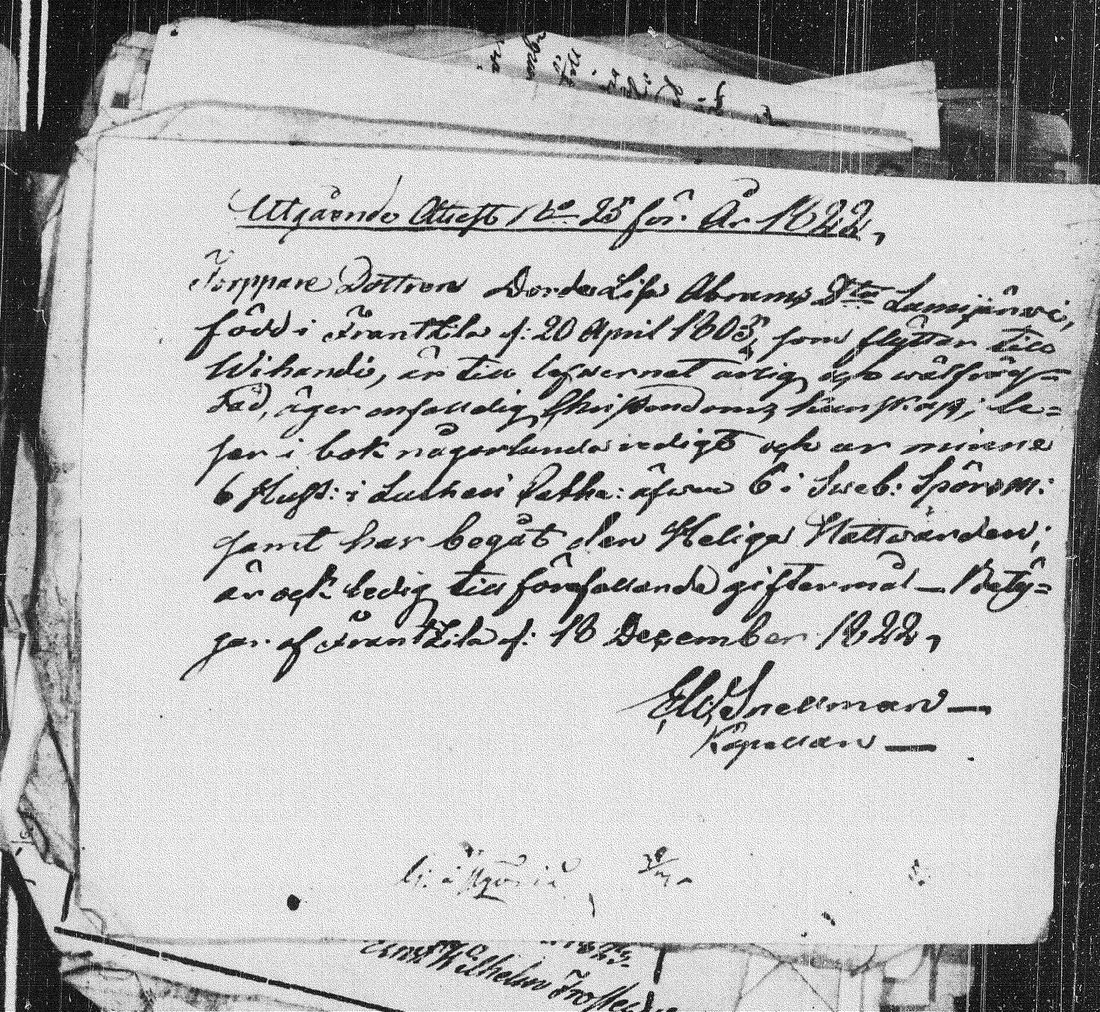 Utgående Attest No 25 för År 1822,
Torppare Dottren Dordo Lisa Abrams Dtr Lamijärwi,
född i Frantzila d: 20 April 1803, som flyttar till
Wihandi, är till lefwernet ärlig och wälfräg-
dad, äger enfalldig Christendoms kunskap; lä-
ser i bok någorlunda redigt och ar minne
6 Hufst: i Lutheri Catke: äfwen 6 i Sweb: Spörsm:
samt har begåt den Heliga Nattvarden;
är ock ledig till förefallande giftermål — Bety-
gar af Frantzila d: 18 December 1822,
Snellman —
Kapellan —
Wilhelm